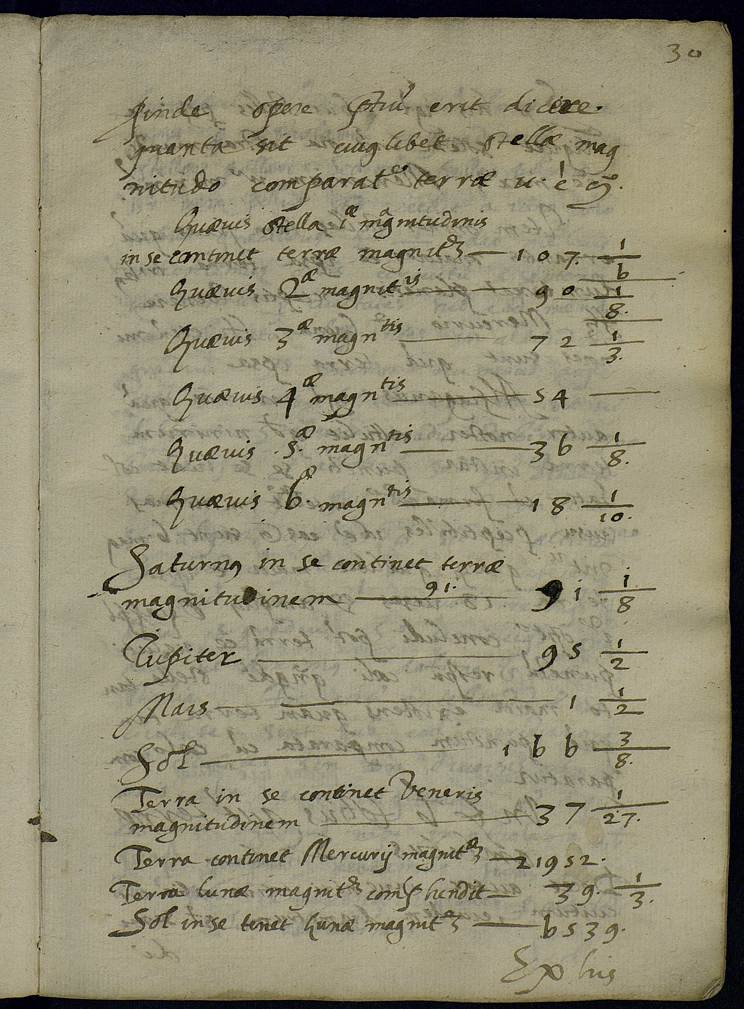 30
pinde opere p̃tiũ erit dicere.
quanta sit cuiuslibet stellæ mag
nitudo comparat terræ
Quæuis stella 1æ magnitudinis
in se continet terræ magnit — 107 1/6
Quæuis 2æ magnit is — 90 1/8.
Quæuis 3æ magntis — 72 1/3.
Quæuis 4æ magntis — 54 —
Quæuis .5.æ magntis — 36 1/8.
Quæuis 6.æ magntis — 18 1/10.
Saturnus in se continet terræ
magnitudinem — 91. — 91 1/8
Iupiter — 95 1/2
Mars — 1 1/2
Sol — 166 3/8.
Terra in se continet Veneris
magnitudinem — 37 1/27.
Terra continet Mercurij magnit — 21952.
Terra lunæ magnit comp̃hendit — 39. 1/3.
Sol in se tenet lunæ magnit — 6539.
Ex his